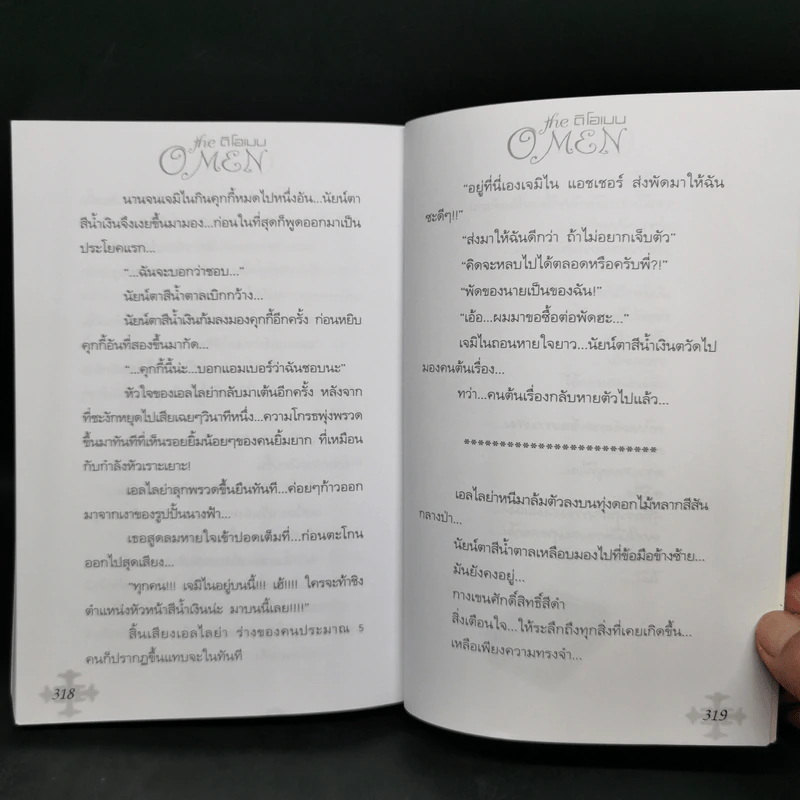 the ดิโอเมน
OMEN
นานจนเจมิไนกินคุกกี้หมดไปหนึ่งอัน...นัยน์ตา
สีน้ำเงินจึงเงยขึ้นมามอง...ก่อนในที่สุดก็พูดออกมาเป็น
ประโยคแรก...
“...ฉันจะบอกว่าชอบ...”
นัยน์ตาสีน้ำตาลเบิกกว้าง...
นัยน์ตาสีน้ำเงินก้มลงมองคุกกี้อีกครั้ง ก่อนหยิบ
คุกกี้อันที่สองขึ้นมากัด...
“...คุกกี้นี้น่ะ...บอกแอมเบอร์ว่าฉันชอบนะ”
หัวใจของเอลไลย่ากลับมาเต้นอีกครั้ง หลังจาก
ที่ชะงักหยุดไปเสียเฉยๆวินาทีหนึ่ง...ความโกรธพุ่งพรวด
ขึ้นมาทันทีที่เห็นรอยยิ้มน้อยๆของคนยิ้มยาก ที่เหมือน
กับกำลังหัวเราะเยาะ!
เอลไลย่าลุกพรวดขึ้นยืนทันที...ค่อยๆก้าวออก
มาจากเงาของรูปปั้นนางฟ้า...
เธอสูดลมหายใจเข้าปอดเต็มที่...ก่อนตะโกน
ออกไปสุดเสียง...
“ทุกคน!!! เจมิไนอยู่บนนี้!!! เฮ้!!!! ใครจะท้าชิง
ตำแหน่งหัวหน้าสีน้ำเงินน่ะ มาบนนี้เลย!!!!”
สิ้นเสียงเอลไลย่า ร่างของคนประมาณ 5
คนก็ปรากฏขึ้นแทบจะในทันที
318
the ดิโอเมน
OMEN
“อยู่ที่นี่เองเจมิไน แอชเชอร์ ส่งพัดมาให้ฉัน
ซะดีๆ!!”
“ส่งมาให้ฉันดีกว่า ถ้าไม่อยากเจ็บตัว”
“คิดจะหลบไปได้ตลอดหรือครับพี่?!”
“พัดของนายเป็นของฉัน!”
“เอ้อ...ผมมาขอซื้อต่อพัดฮะ...”
เจมิไนถอนหายใจยาว...นัยน์ตาสีน้ำเงินตวัดไป
มองคนต้นเรื่อง...
ทว่า...คนต้นเรื่องกลับหายตัวไปแล้ว...
***************************
เอลไลย่าหนีมาล้มตัวลงบนทุ่งดอกไม้หลากสีสัน
กลางป่า...
นัยน์ตาสีน้ำตาลเหลือบมองไปที่ข้อมือข้างซ้าย...
มันยังคงอยู่...
กางเขนศักดิ์สิทธิ์สีดำ
สิ่งเตือนใจ...ให้ระลึกถึงทุกสิ่งที่เคยเกิดขึ้น...
เหลือเพียงความทรงจำ...
319